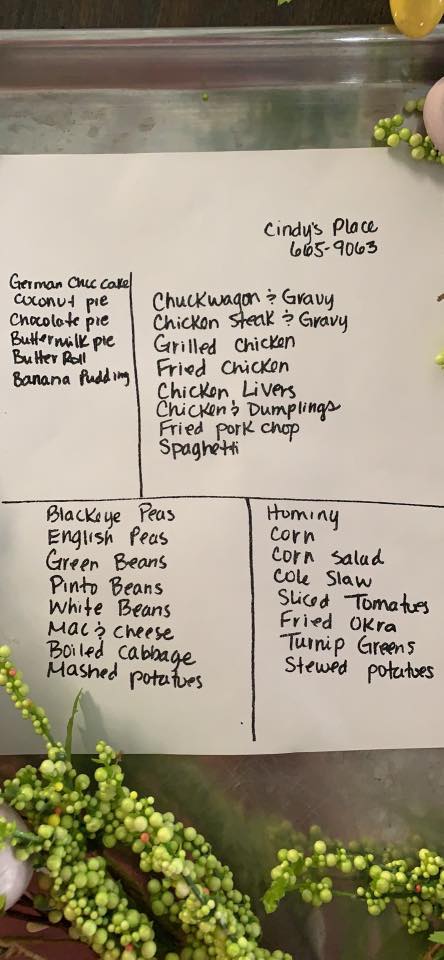 Cindy's Place
665-9063
German Choc cake
Coconut pie
Chocolate pie
Buttermilk pie
Butter Roll
Banana Pudding
Chuckwagon & Gravy
Chicken Steak & Gravy
Grilled Chicken
Fried Chicken
Chicken Livers
Chicken & Dumplings
Fried pork chop
Spaghetti
Blackeye Peas
English Peas
Green Beans
Pinto Beans
White Beans
Mac & cheese
Boiled cabbage
Mashed potatoes
Hominy
Corn
Corn salad
Cole Slaw
Sliced Tomatoes
Fried Okra
Turnip Greens
Stewed potatoes